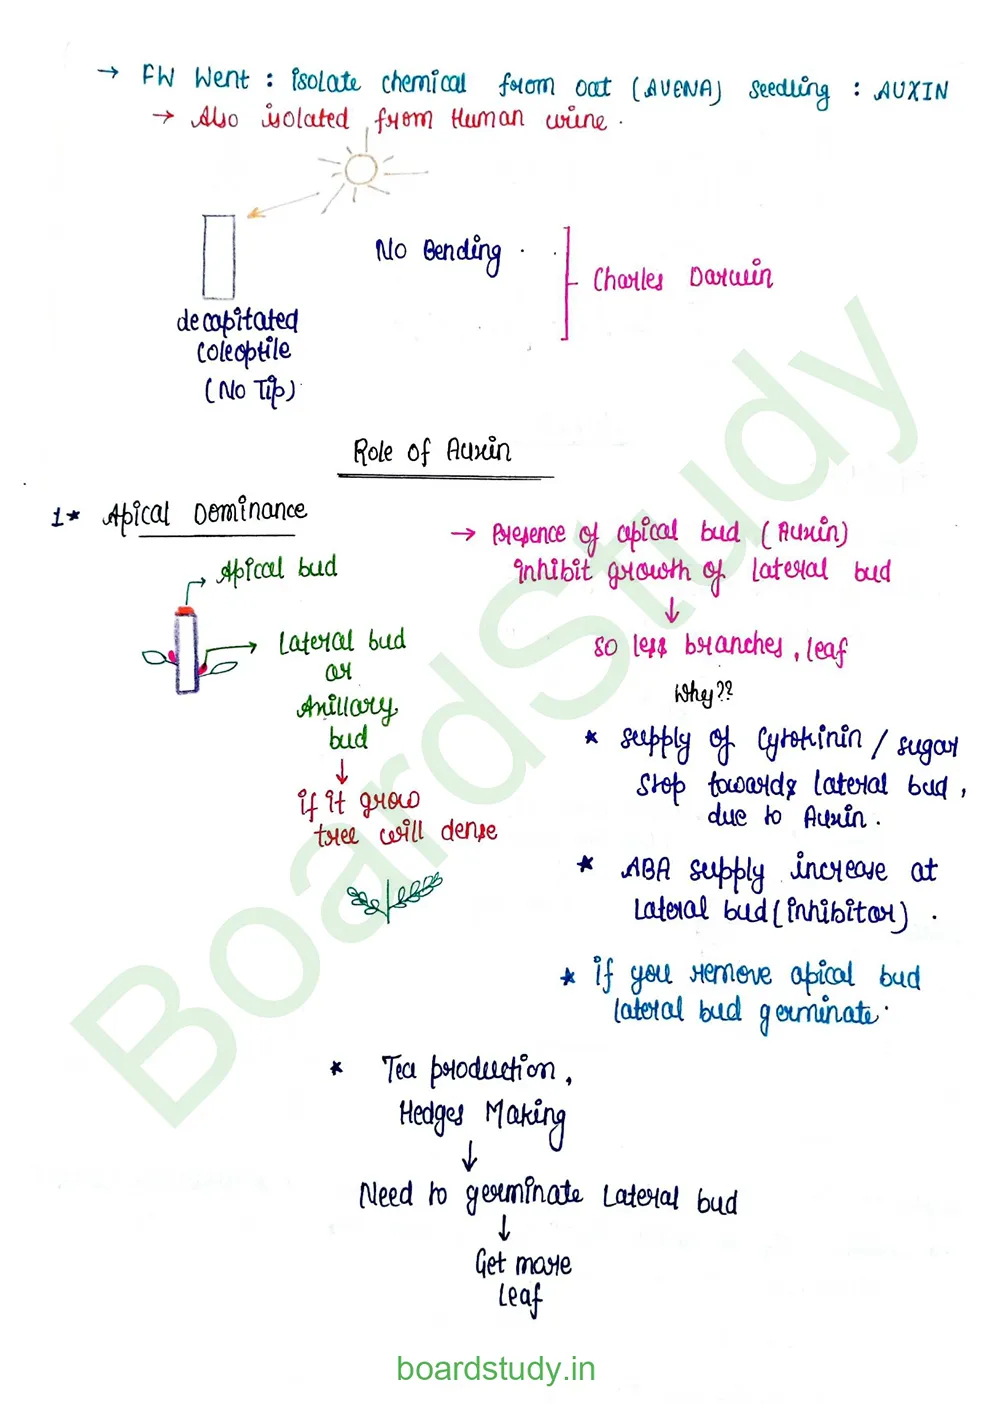 → FW Went : isolate chemical from oat (AVENA) seedling : AUXIN
→ Also isolated from Human urine.
No Bending.
Charles Darwin
decapitated
coleoptile
(No Tip)
Role of Auxin
1* Apical Dominance
→ Presence of apical bud (Auxin)
inhibit growth of lateral bud
↓
so less branches, leaf
Why??
* supply of cytokinin / sugar
stop towards lateral bud,
due to Auxin.
* ABA supply increase at
lateral bud (inhibitor).
* if you remove apical bud
lateral bud germinate.
Apical bud
Lateral bud
or
Axillary
bud
↓
if it grow
tree will dense
* Tea production,
Hedges Making
↓
Need to germinate Lateral bud
↓
Get more
leaf
BoardStudy
boardstudy.in